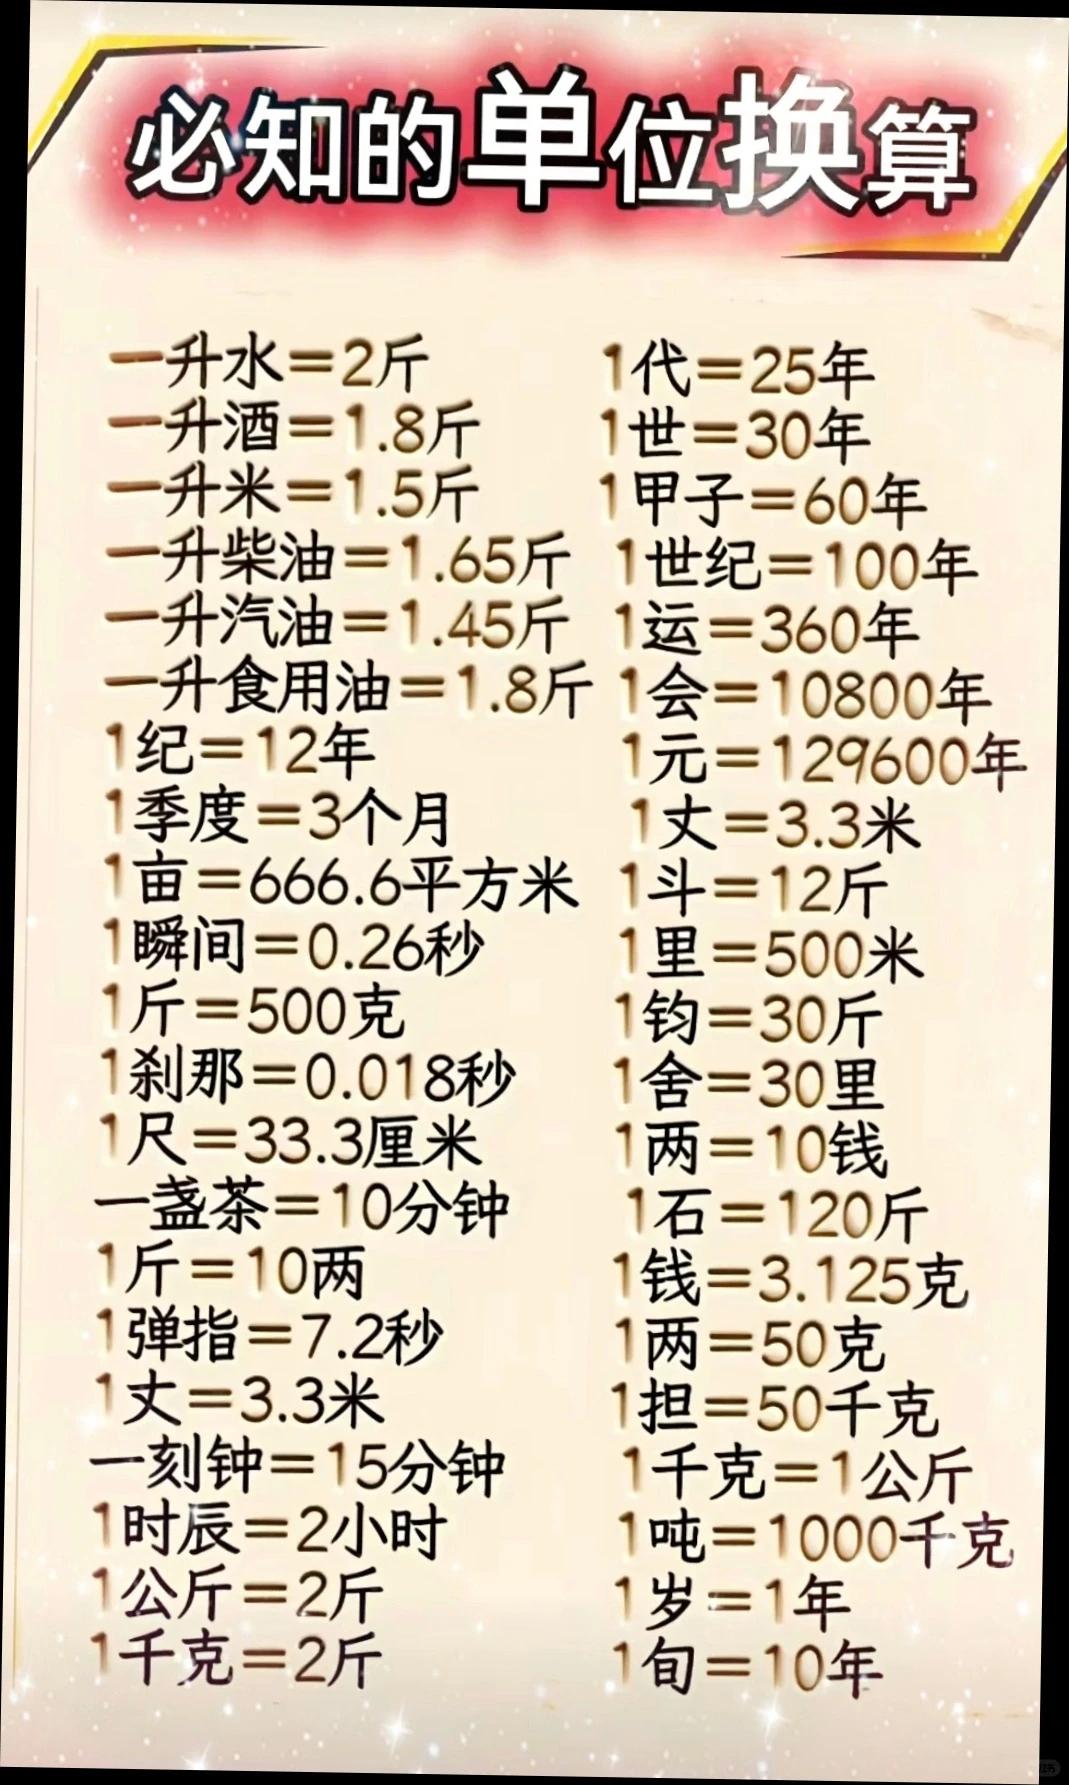 必知的单位换算
一升水=2斤
一升酒=1.8斤
一升米=1.5斤
一升柴油=1.65斤
一升汽油=1.45斤
一升食用油=1.8斤
1纪=12年
1季度=3个月
1亩=666.6平方米
1瞬间=0.26秒
1斤=500克
1刹那=0.018秒
1尺=33.3厘米
一盏茶=10分钟
1斤=10两
1弹指=7.2秒
1丈=3.3米
一刻钟=15分钟
1时辰=2小时
1公斤=2斤
1千克=2斤
1代=25年
1世=30年
1甲子=60年
1世纪=100年
1运=360年
1会=10800年
1元=129600年
1丈=3.3米
1斗=12斤
1里=500米
1钧=30斤
1舍=30里
1两=10钱
1石=120斤
1钱=3.125克
1两=50克
1担=50千克
1千克=1公斤
1吨=1000千克
1岁=1年
1旬=10年